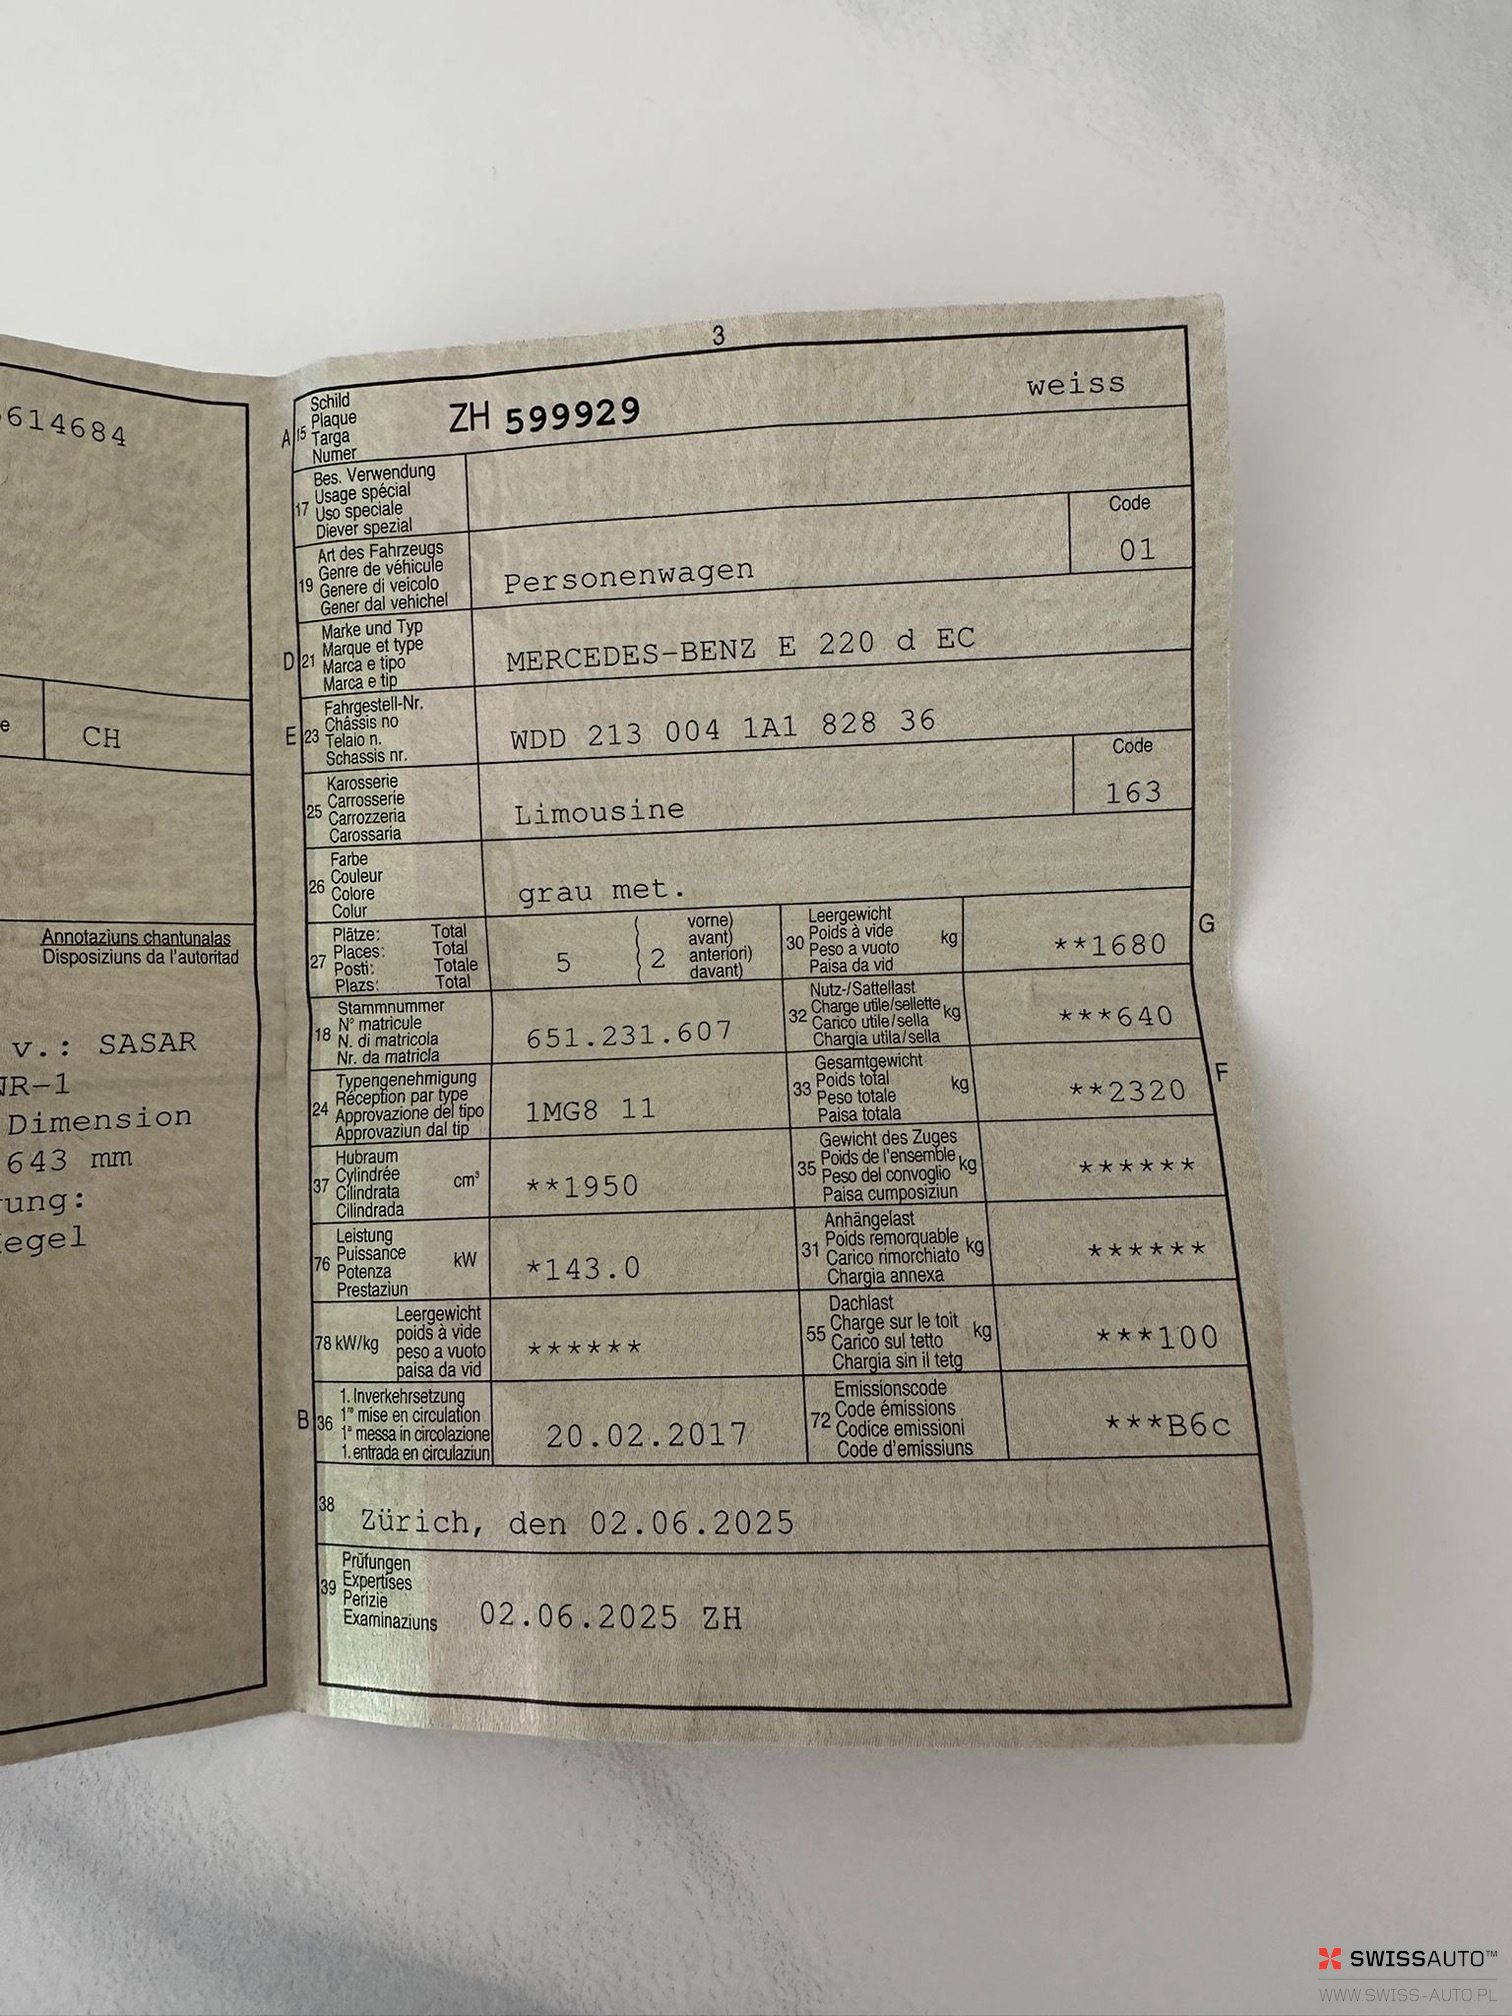 614684
CH
Annotaziuns chantunalas
Disposiziuns da l'autoritad
v.: SASAR
Dimension
643 mm
3
A 15 Schild
Plaque
Targa
Numer
ZH 599929
weiss
17 Bes. Verwendung
Usage spécial
Uso speciale
Diever spezial
19 Art des Fahrzeugs
Genre de véhicule
Genere di veicolo
Gener dal vehichel
Personenwagen
Code
01
D 21 Marke und Typ
Marque et type
Marca e tipo
Marca e tip
MERCEDES-BENZ E 220 d EC
E 23 Fahrgestell-Nr.
Châssis no
Telaio n.
Schassis nr.
WDD 213 004 1A1 828 36
25 Karosserie
Carrosserie
Carrozzeria
Carossaria
Limousine
Code
163
26 Farbe
Couleur
Colore
Colur
grau met.
27 Plätze: Total
Places: Total
Posti: Totale
Plazs: Total
5
2
vorne)
avant)
anteriori)
davant)
30 Leergewicht
Poids à vide
Peso a vuoto
Paisa da vid
kg
**1680
G
18 Stammnummer
N° matricule
N. di matricola
Nr. da matricla
651.231.607
32 Nutz-/Sattellast
Charge utile/sellette
Carico utile/sella
Chargia utila/sella
kg
***640
24 Typengenehmigung
Réception par type
Approvazione del tipo
Approvaziun dal tip
1MG8 11
33 Gesamtgewicht
Poids total
Peso totale
Paisa totala
kg
**2320
F
37 Hubraum
Cylindrée
Cilindrata
Cilindrada
cm³
**1950
35 Gewicht des Zuges
Poids de l'ensemble
Peso del convoglio
Paisa cumposiziun
kg
******
76 Leistung
Puissance
Potenza
Prestaziun
kW
*143.0
31 Anhängelast
Poids remorquable
Carico rimorchiato
Chargia annexa
kg
******
78 kW/kg
Leergewicht
poids à vide
peso a vuoto
paisa da vid
******
55 Dachlast
Charge sur le toit
Carico sul tetto
Chargia sin il tetg
kg
***100
B 36 1. Inverkehrsetzung
1re mise en circulation
1a messa in circolazione
1. entrada en circulaziun
20.02.2017
72 Emissionscode
Code émissions
Codice emissioni
Code d'emissiuns
***B6c
38 Zürich, den 02.06.2025
39 Prüfungen
Expertises
Perizie
Examinaziuns
02.06.2025 ZH
SWISSAUTO™
WWW.SWISS-AUTO.PL